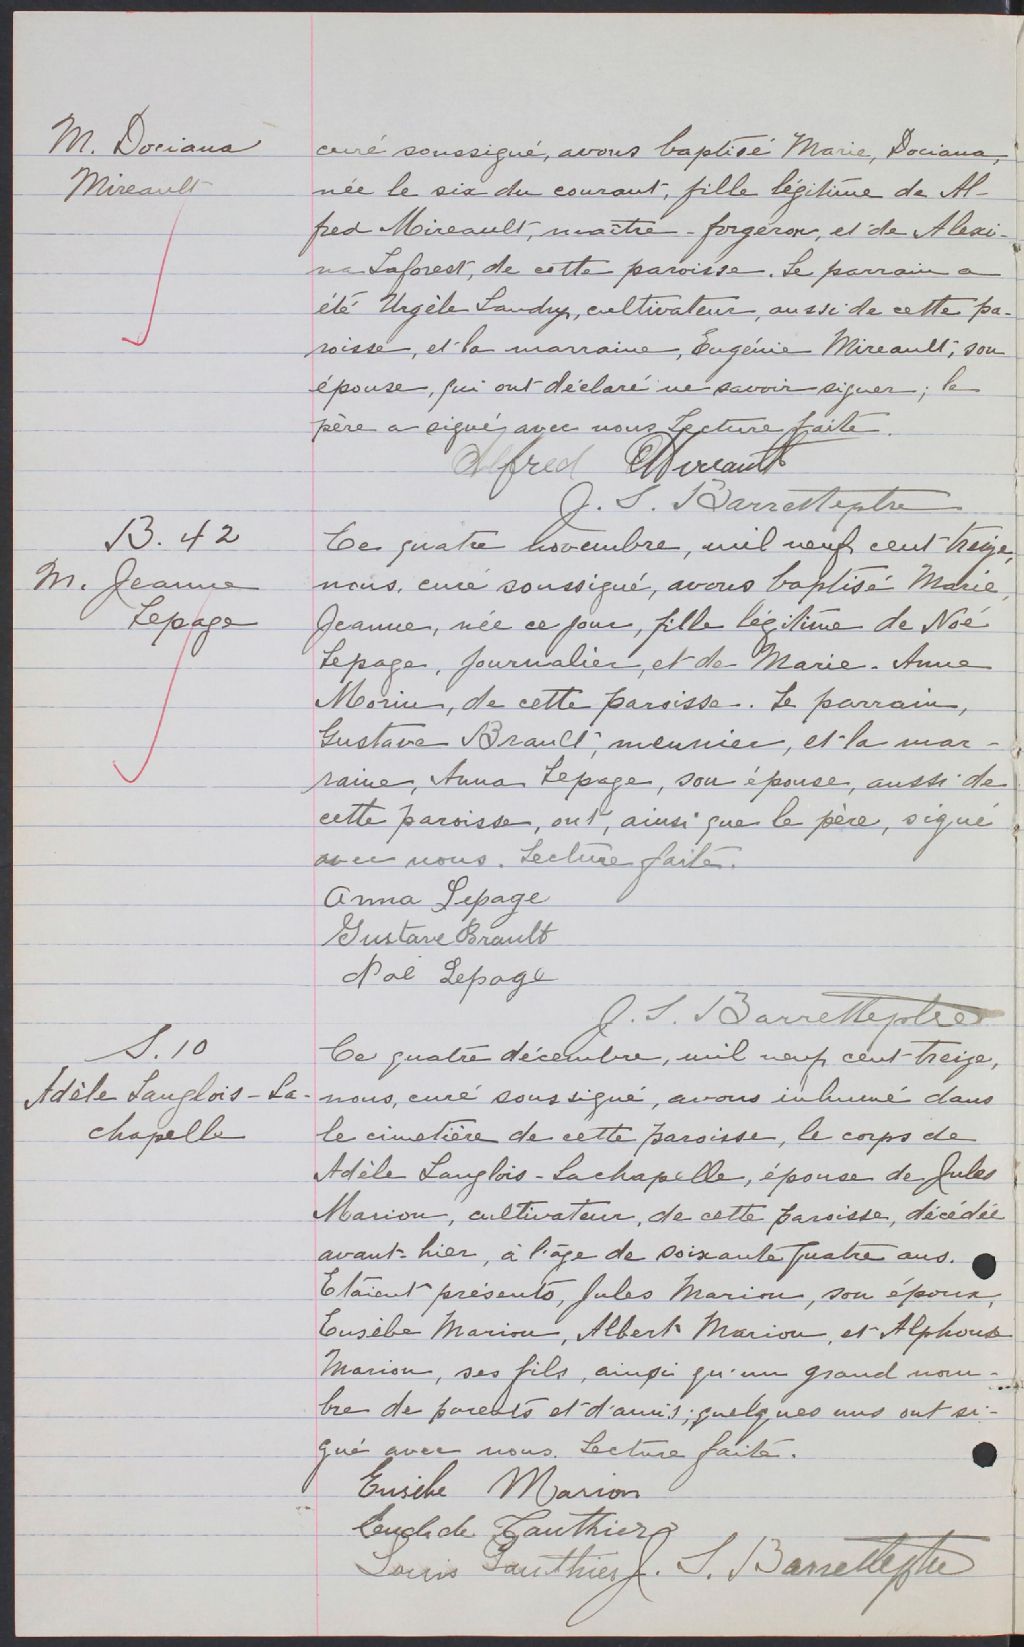 M. Dociana
Mireault
curé soussigné, avons baptisé Marie, Dociana,
née le six du courant, fille légitime de Al-
fred Mireault, maître-forgeron, et de Alexi-
na Laforest, de cette paroisse. Le parrain a
été Urgèle Landry, cultivateur, aussi de cette pa-
roisse, et la marraine, Eugénie Mireault, son
épouse, qui ont déclaré ne savoir signer; le
père a signé avec nous. Lecture faite.
Alfred Mireault
J. S. Barrette ptre
B. 42
M. Jeanne
Lepage
Ce quatre novembre, mil neuf cent treize,
nous, curé soussigné, avons baptisé Marie,
Jeanne, née ce jour, fille légitime de Noé
Lepage, journalier, et de Marie-Anne
Morin, de cette paroisse. Le parrain,
Gustave Brault, meunier, et la mar-
raine, Anna Lepage, son épouse, aussi de
cette paroisse, ont, ainsi que le père, signé
avec nous. Lecture faite.
Anna Lepage
Gustave Brault
Noé Lepage
J. S. Barrette ptre
S. 10
Adèle Langlois-La-
chapelle
Ce quatre décembre, mil neuf cent treize,
nous, curé soussigné, avons inhumé dans
le cimetière de cette paroisse, le corps de
Adèle Langlois-Lachapelle, épouse de Jules
Marion, cultivateur, de cette paroisse, décédée
avant-hier, à l'âge de soixante quatre ans.
Etaient présents, Jules Marion, son époux,
Eusèbe Marion, Albert Marion, et Alphonse
Marion, ses fils, ainsi qu'un grand nom-
bre de parents et d'amis; quelques uns ont si-
gné avec nous. Lecture faite.
Eusèbe Marion
Euclide Gauthier
Louis Gauthier J. S. Barrette ptre